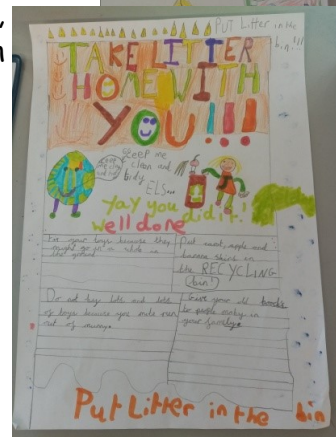 PUT Litter in the
bin...
TAKE LITTER
HOME WITH
YOU!!!
Keep me
clean and
tidy
ELS...
Yay you did it!
well done
Fix your toys because they
might go in a hole in
the ground
Put sweet, apple and
banana skins in
the RECYCLING
bin!
Do not buy lots and lots
of toys because you might run
out of money.
Give your old books
to people only in
your family.
Put Litter in the bin